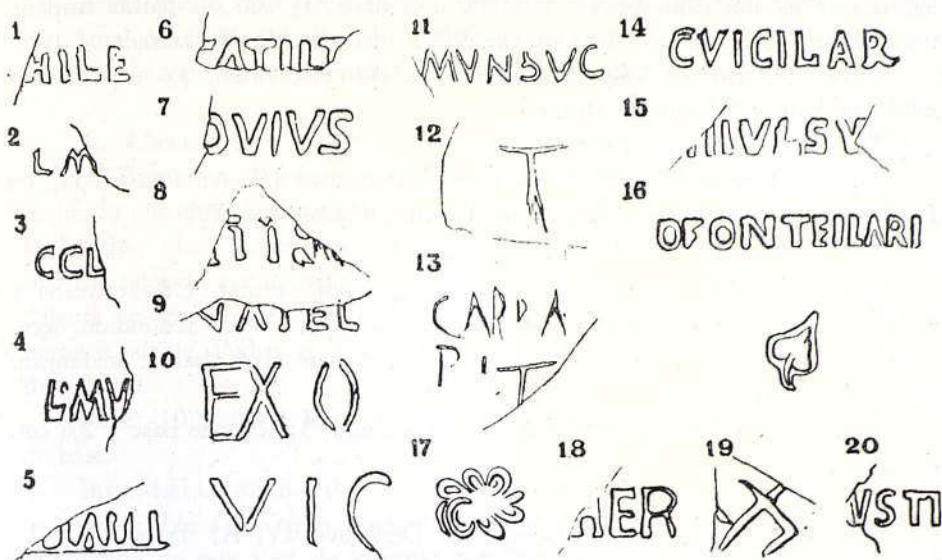 1
HILE
2
L M
3
CCL
4
L'MV
5
6
CATILI
7
OVIVS
8
9
VATEL
10
EX O
VIC
11
MVNSVC
12
T
13
CARPA
P'T
14
CVICILAR
15
IIVLSY
16
OFONTEILARI
17
18
ER
19
20
VSTI